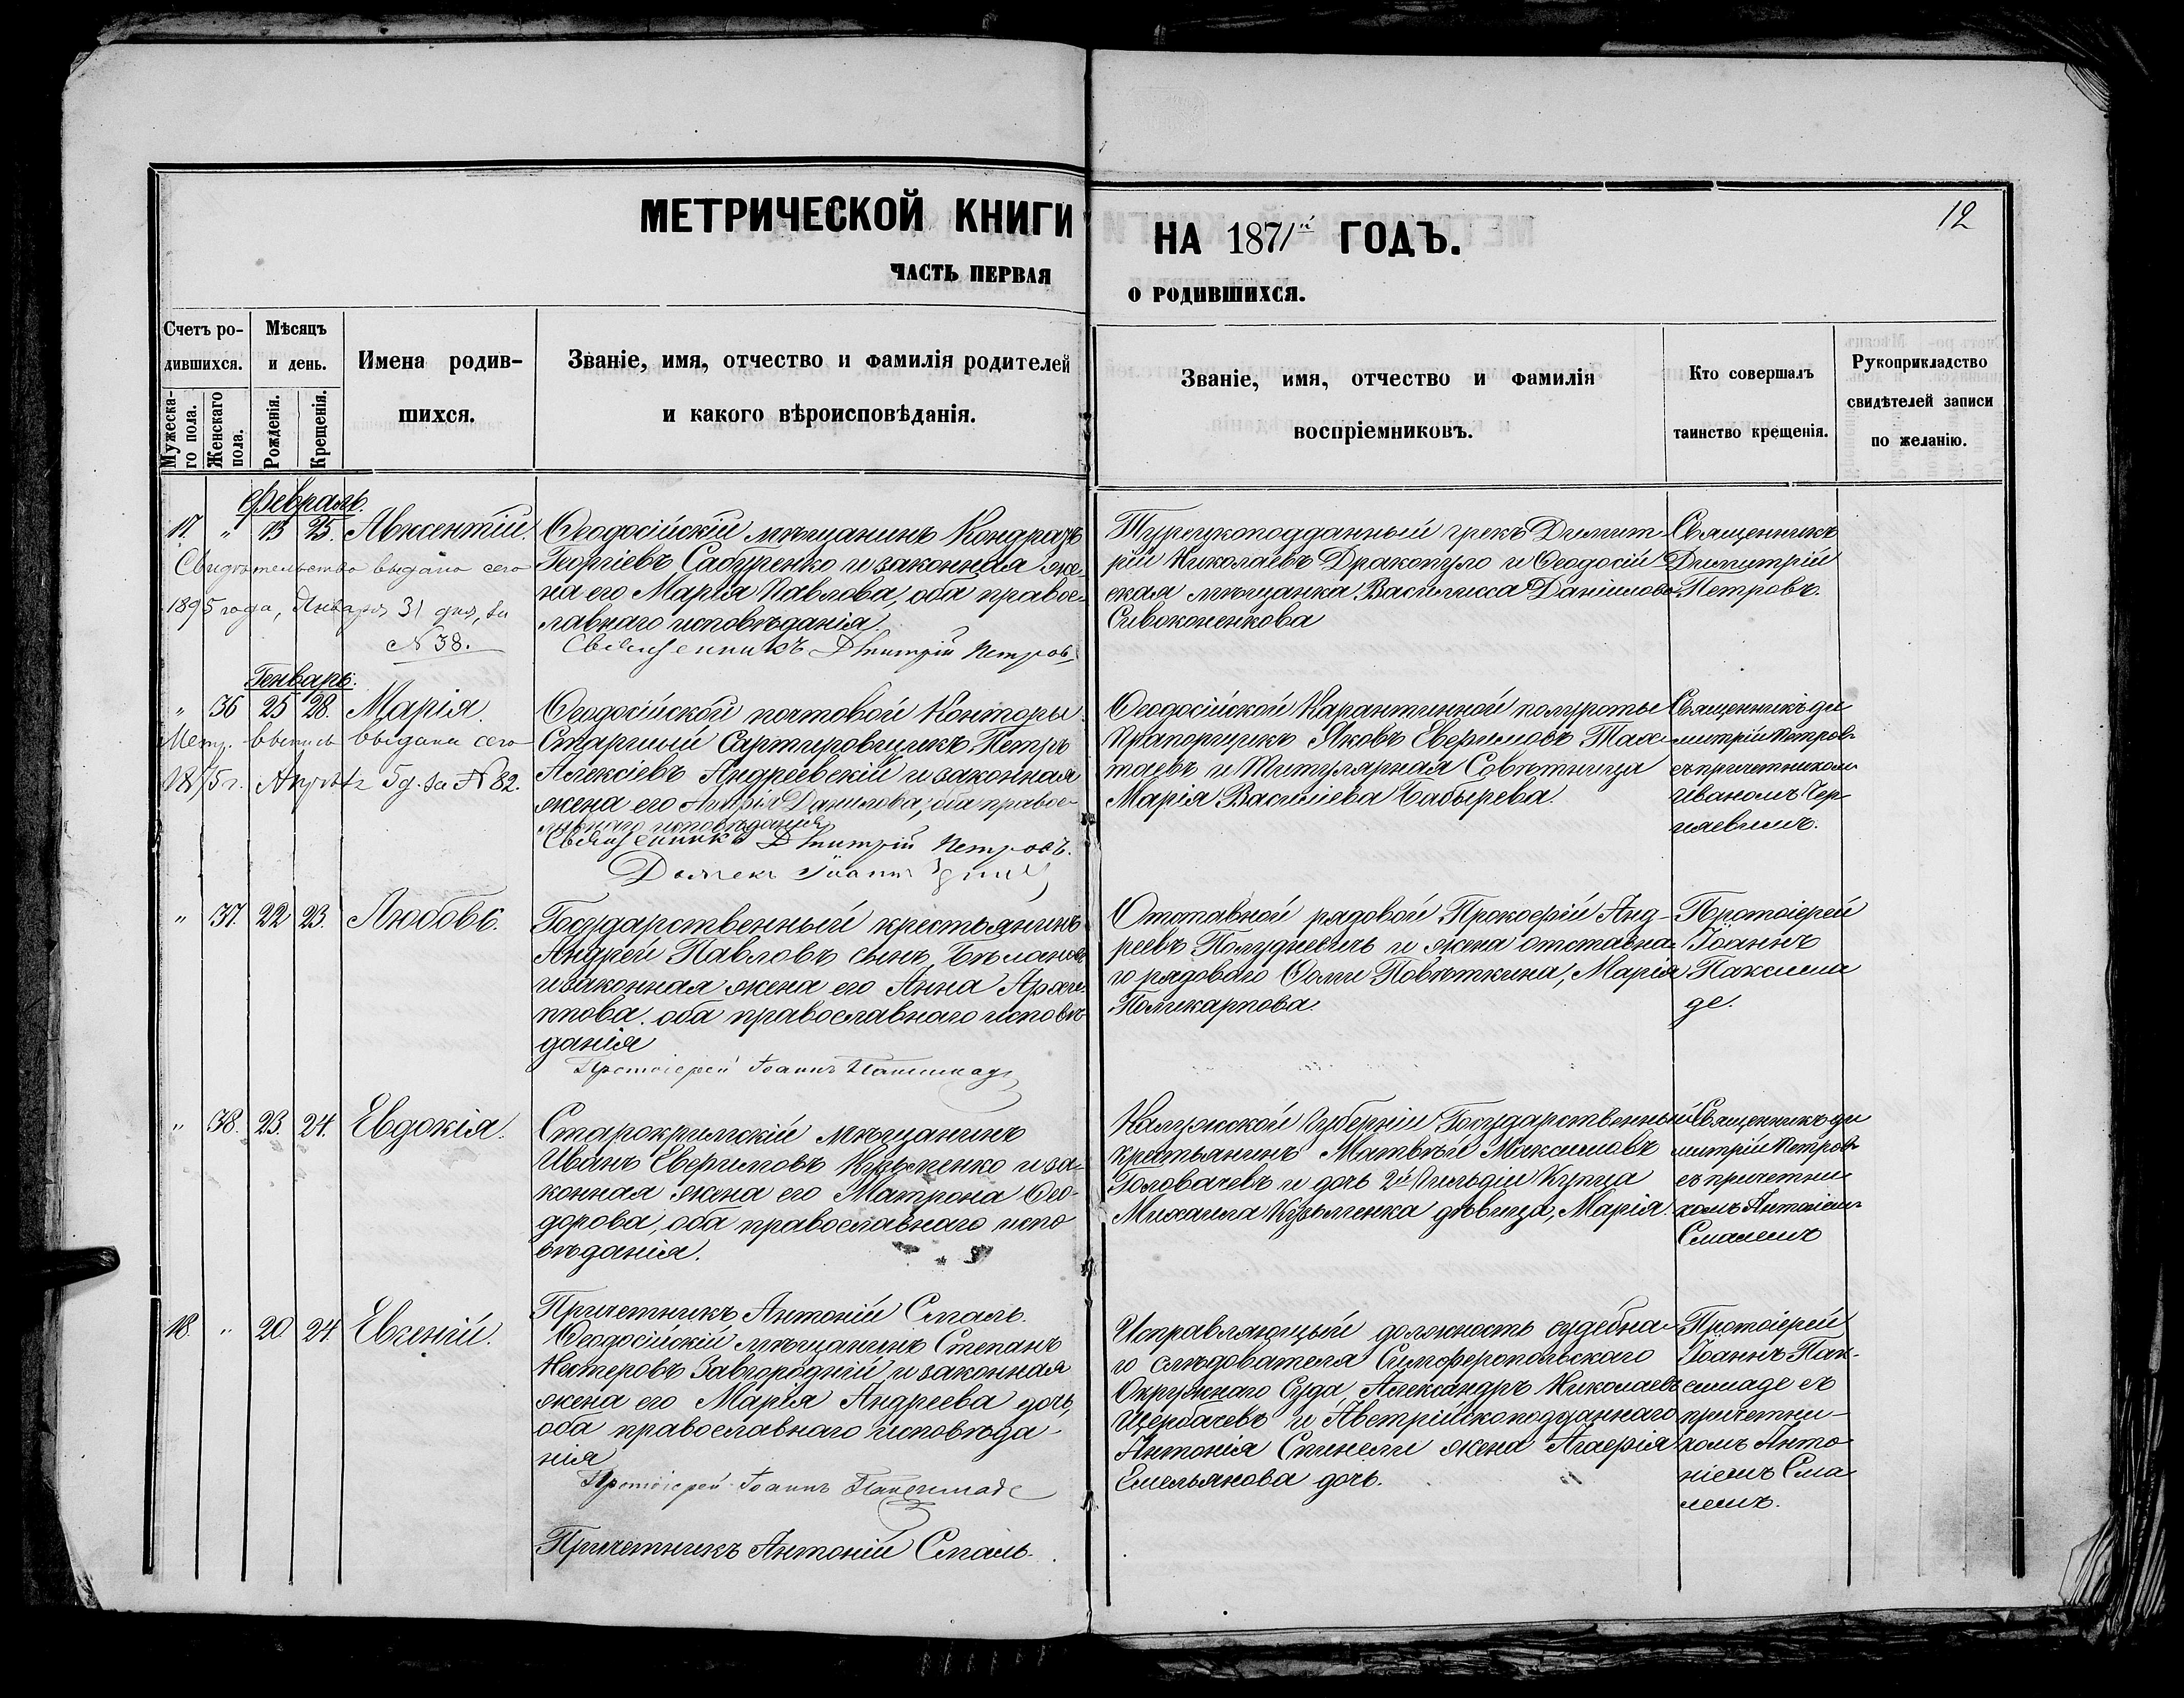 12
МЕТРИЧЕСКОЙ КНИГИ НА 1871й ГОДЪ.
ЧАСТЬ ПЕРВАЯ О РОДИВШИХСЯ.
Счетъ ро-
дившихся.
Мужеска-
го пола.
Женскаго
пола.
Мѣсяцъ
и день.
Рожденія.
Крещенія.
Имена родив-
шихся.
Званіе, имя, отчество и фамилія родителей
и какого вѣроисповѣданія.
Званіе, имя, отчество и фамилія
воспріемниковъ.
Кто совершалъ
таинство крещенія.
Рукоприкладство
свидѣтелей записи
по желанію.
Февраль.
17. " 13 25. Авксентій.
Свидѣтельство выдано сего
1895 года, Января 31 дня, за
N 38.
Ѳеодосійскій мѣщанинъ Кондратъ
Георгіевъ Сабуренко и законная же-
на его Марія Павлова, оба правос-
лавнаго исповѣданія.
Священникъ Дмитрій Петровъ
Турецкоподданный грекъ Димит-
рій Николаевъ Дракопуло и Ѳеодосій
ская мѣщанка Василисса Даніилова
Сивоконенкова
Священникъ
Димитрій
Петровъ.
Генварь.
" 36 25 28. Марія.
Метр. выпись выдана сего
1875 г. Апрѣля 5 д. за N 82.
Ѳеодосійской почтовой Конторы
Старшій Сартировщикъ Петръ
Алексіевъ Андреевскій и законная
жена его Марія Данилова, оба правос-
лавнаго исповѣданія
Священникъ Дмитрій Петровъ.
Ѳеодосійской Карантинной полуроты
Прапорщикъ Яковъ Евфимовъ
и Титулярная Совѣтница
Марія Василіева Бабырева.
Священникъ Ди
митрій Петровъ
съ причетникомъ
Иваномъ Чер
няевымъ.
" 37. 22 23. Любовь.
Государственный крестьянинъ
Андрей Павловъ сынъ Бѣлановъ
и законная жена его Анна Архи-
ппова. оба православнаго исповѣ-
данія
Протоіерей Іоаннъ Паксимаде
Отставной рядовой Прокофій Анд-
реевъ и жена отставна-
го рядоваго Ѳомы Повѣткина, Марія
Поликарпова.
Протоіерей
Іоаннъ
Паксима
де.
" 38. 23. 24. Евдокія.
Старокримскій мѣщанинъ
Иванъ Евфимовъ Кузменко и за-
конная жена его Матрона Ѳео-
дорова, оба православнаго испо
вѣданія.
Причетникъ Антоній Смаль.
Калужской Губерніи Государственный
крестьянинъ Матвѣй Максимовъ
Головачевъ и дочь 2й Гильдіи Купца
Михаила Кузьменка дѣвица, Марія.
Священникъ Ди
митрій Петровъ
съ причетни
комъ Антоніемъ
Смалемъ
18. " 20 24 Евгеній.
Ѳеодосійскій мѣщанинъ Степанъ
Нестеровъ Завгородній и законная
жена его Марія Андреева дочь,
оба православнаго исповѣда-
нія
Протоіерей Іоаннъ Паксимаде
Причетникъ Антоній Смаль.
Исправляющій должность судебна-
го слѣдователя Симферопольскаго
Окружнаго Суда, Александръ Николаевъ
Щербачевъ и Австрійскоподданнаго
Антонія Спинели жена Агафія
Емельянова дочь.
Протоіерей
Іоаннъ Пак-
симаде съ
причетни-
комъ Анто
ніемъ Сма
лемъ.